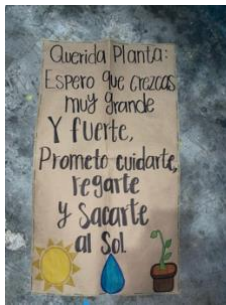 Querida Planta:
Espero que crezcas
muy grande
Y fuerte,
Prometo cuidarte,
regarte
y Sacarte
al Sol.